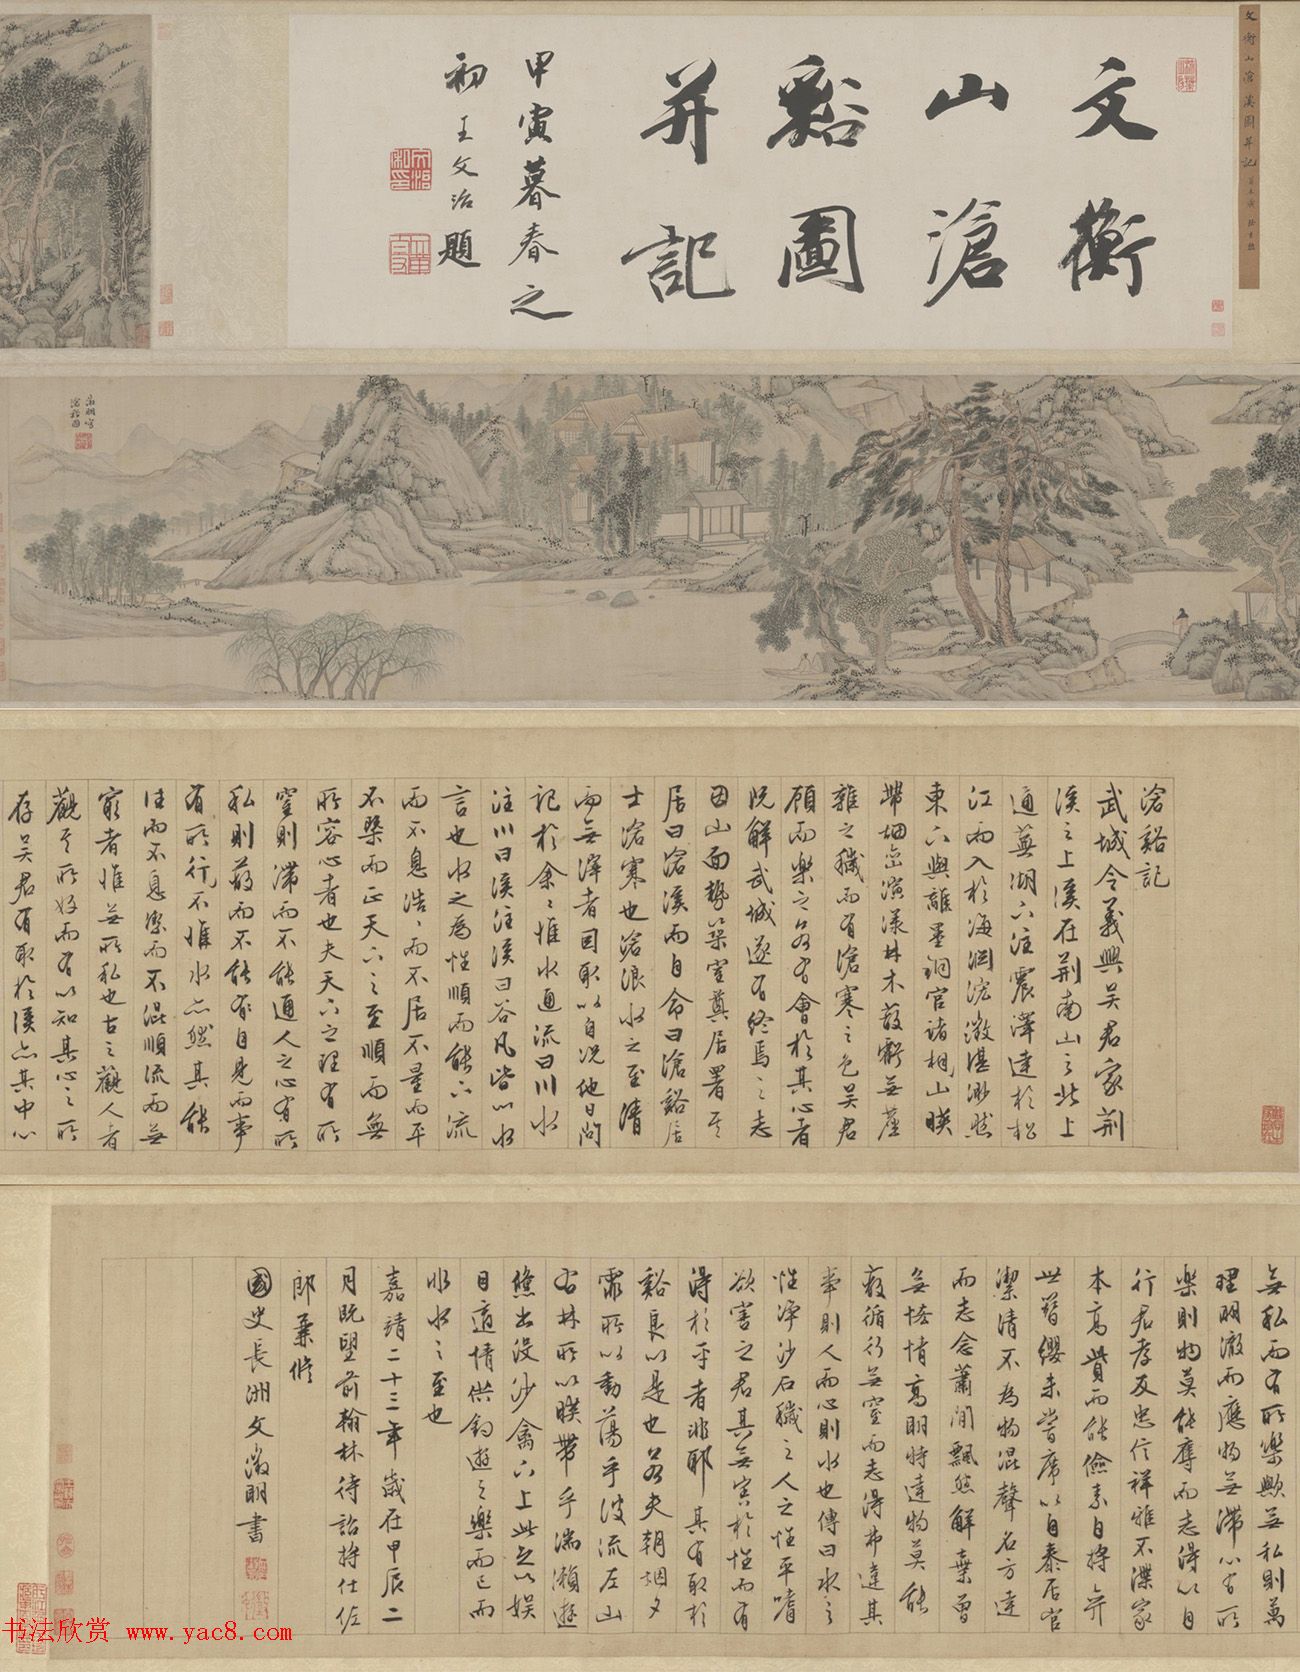 文衡山滄溪圖并記
文衡
山滄
谿圖
并記
甲寅暮春之
初王文治題
徵明寫
滄谿圖
滄谿記
武城令義興吳君家荊
溪之上溪在荊南山之北上
通蕪湖下注震澤達於松
江而入於海淵浤澂湛渺然
東下與離墨銅官諸桐山映
帶烟雲演漾林木蔽虧無塵
雜之穢而有滄寒之色吳君
顧而樂之若有會於其心者
既解武城遂有終焉之志
因山面勢築室奠居署其
居曰滄溪而自命曰滄谿居
士滄寒也滄浪水之至清
而無滓者固取以自况他日問
記於余〻惟水通流曰川水
注川曰溪注溪曰谷凡皆以水
言也水之為性順而能下流
而不息浩〻而不居不量而平
不槩而正天下之至順而無
所容心者也夫天下之理有所
窒則滯而不能通人之心有所
私則蔽而不能有自見而事
有所行不惟水亦然其能
往而不息潔而不混順流而無
窮者惟無所私也古之觀人者
觀其所好而有以知其心之所
存吳君有取於溪亦其中心
無私而有所樂歟無私則萬
理明澈而應物無滯心有所
樂則物莫能奪而志得以自
行君孝友忠信祥雅不渫家
本高貲而能儉素自持弈
世簪纓未嘗席以自泰居官
潔清不為物混聲名方達
而志念蕭閒飄然解棄曾
無悋情高明特達物莫能
蔽循行無窒而志得弗違其
率則人而心則水也傳曰水之
性淨沙石穢之人之性平嗜
欲害之君其無害於性而有
得於平者非耶其有取於
谿良以是也若夫朝烟夕
霏所以動蕩乎波流左山
右林所以映帶乎湍瀨遊
鯈出沒沙禽下上此足以娛
目適情供釣遊之樂而已而
非水之至也
嘉靖二十三年歲在甲辰二
月既望前翰林待詔將仕佐
郎兼脩
國史長洲文徵明書
书法欣赏 www.yac8.com